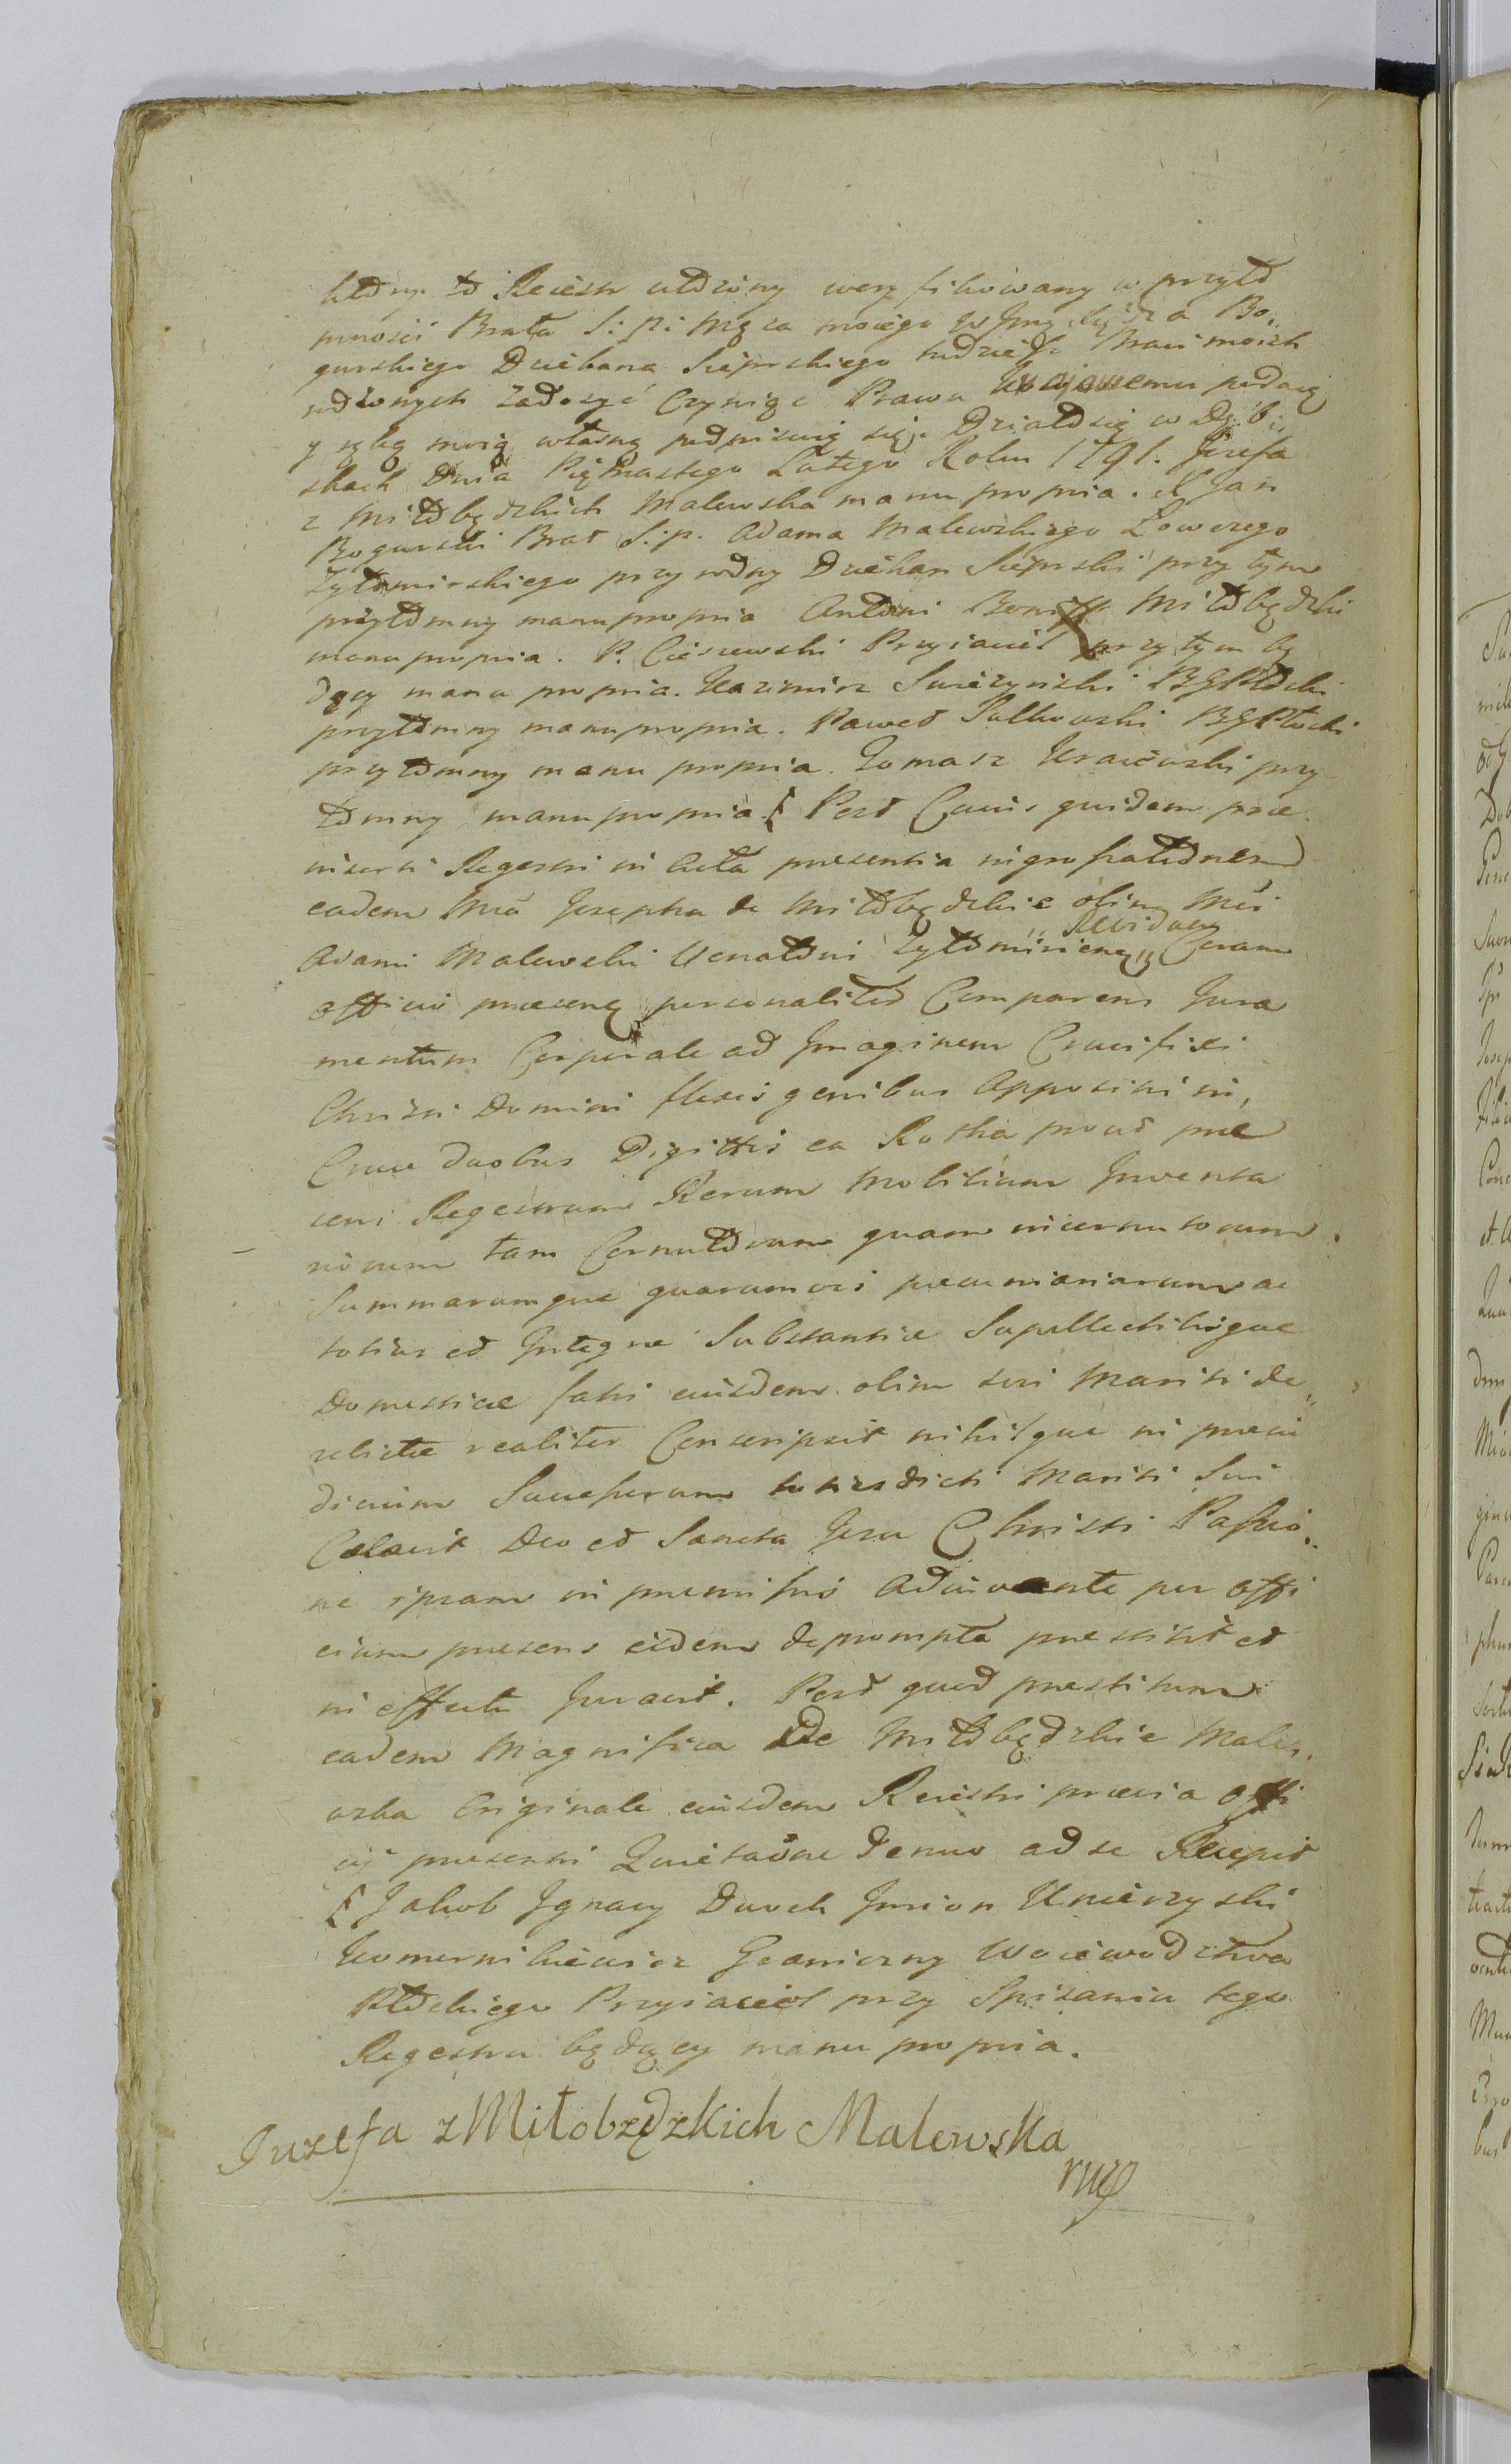 który to Reiestr utożony weryfikowany w przyto
mności Brata S: p: Męża moiego W Jmę Xiędza Bo„
gurskiego Dziekana Sieprskiego tudzież Braci moich
rodzonych zadosyć Czyniąc Prawu Kraiowemu podaię
y ręką moią własną podpisuię się. Działo się w Dębi„
skach Dnia Piętnastego Lutego Roku 1791. Jozefa
z Miłobędzkich Malewska manu propria. X Jan
Bogurski Brat S: p. Adama Malewskiego Łowczego
Zytomirskiego przyrodny Dziekan Sieprski przy tym
przytomny manu propria Antoni Miłobędzki
manu propria. P. Cieszewski Przyiaciel przy tym bę
dący manu propria. Kazimirz Swieżyński BGPłocki
przytomny manu propria. Paweł Sulkowski BGPłocki
przytomny manu propria. Tomasz Kraiewski przy
tomny manu propria. Post Cuius quidem præ
inserti Regestri in Acta præsentia ingrossationem
eadem Mca Josepha de Miłobędzkie olim Mci
Adami Malewski Venatoris Zytomirien. „Relicta vidua„ Coram
officio præsenti personaliter Comparens Jura
mentum Corporale ad Jmaginem Crucifixi
Christi Domini flexis genibus Appositis in
Cruce duobus Digittis ea Rotha prout præ
sens Regestrum Rerum Mobilium Jnventa
riorum tam Cornutorum quam incornutorum
Summarumque quarumvis pecuniariarum ac
totius et Jntegræ Substantiæ Supellectilisque
Domesticæ fati eiusdem olim sui Mariti de„
relictæ realiter Conscripsit nihilque in præiu
dicium Successorum toties dicti Mariti Sui
Celavit Deo et Sancta Jesu Christi Passio„
ne ipsam in præmissis Adiuvante per offi
cium præsens eidem deprompta præstitit et
in effectu Juravit. Post quod præstitum
eadem Magnifica De Miłobędzkie Malew„
ska Originale eiusdem Reiestri prævia offi
cij præsentis Quietaōne denuo ad se Recepit
Jakob Jgnacy Dwoch Jmion Umierzyski
Komornikiewicz Graniczny Woiewodztwa
Płockiego Przyiaciel przy Spisaniu tego
Regestru będący manu propria.
Juzefa z Miłobzędzkich Malewska
mp